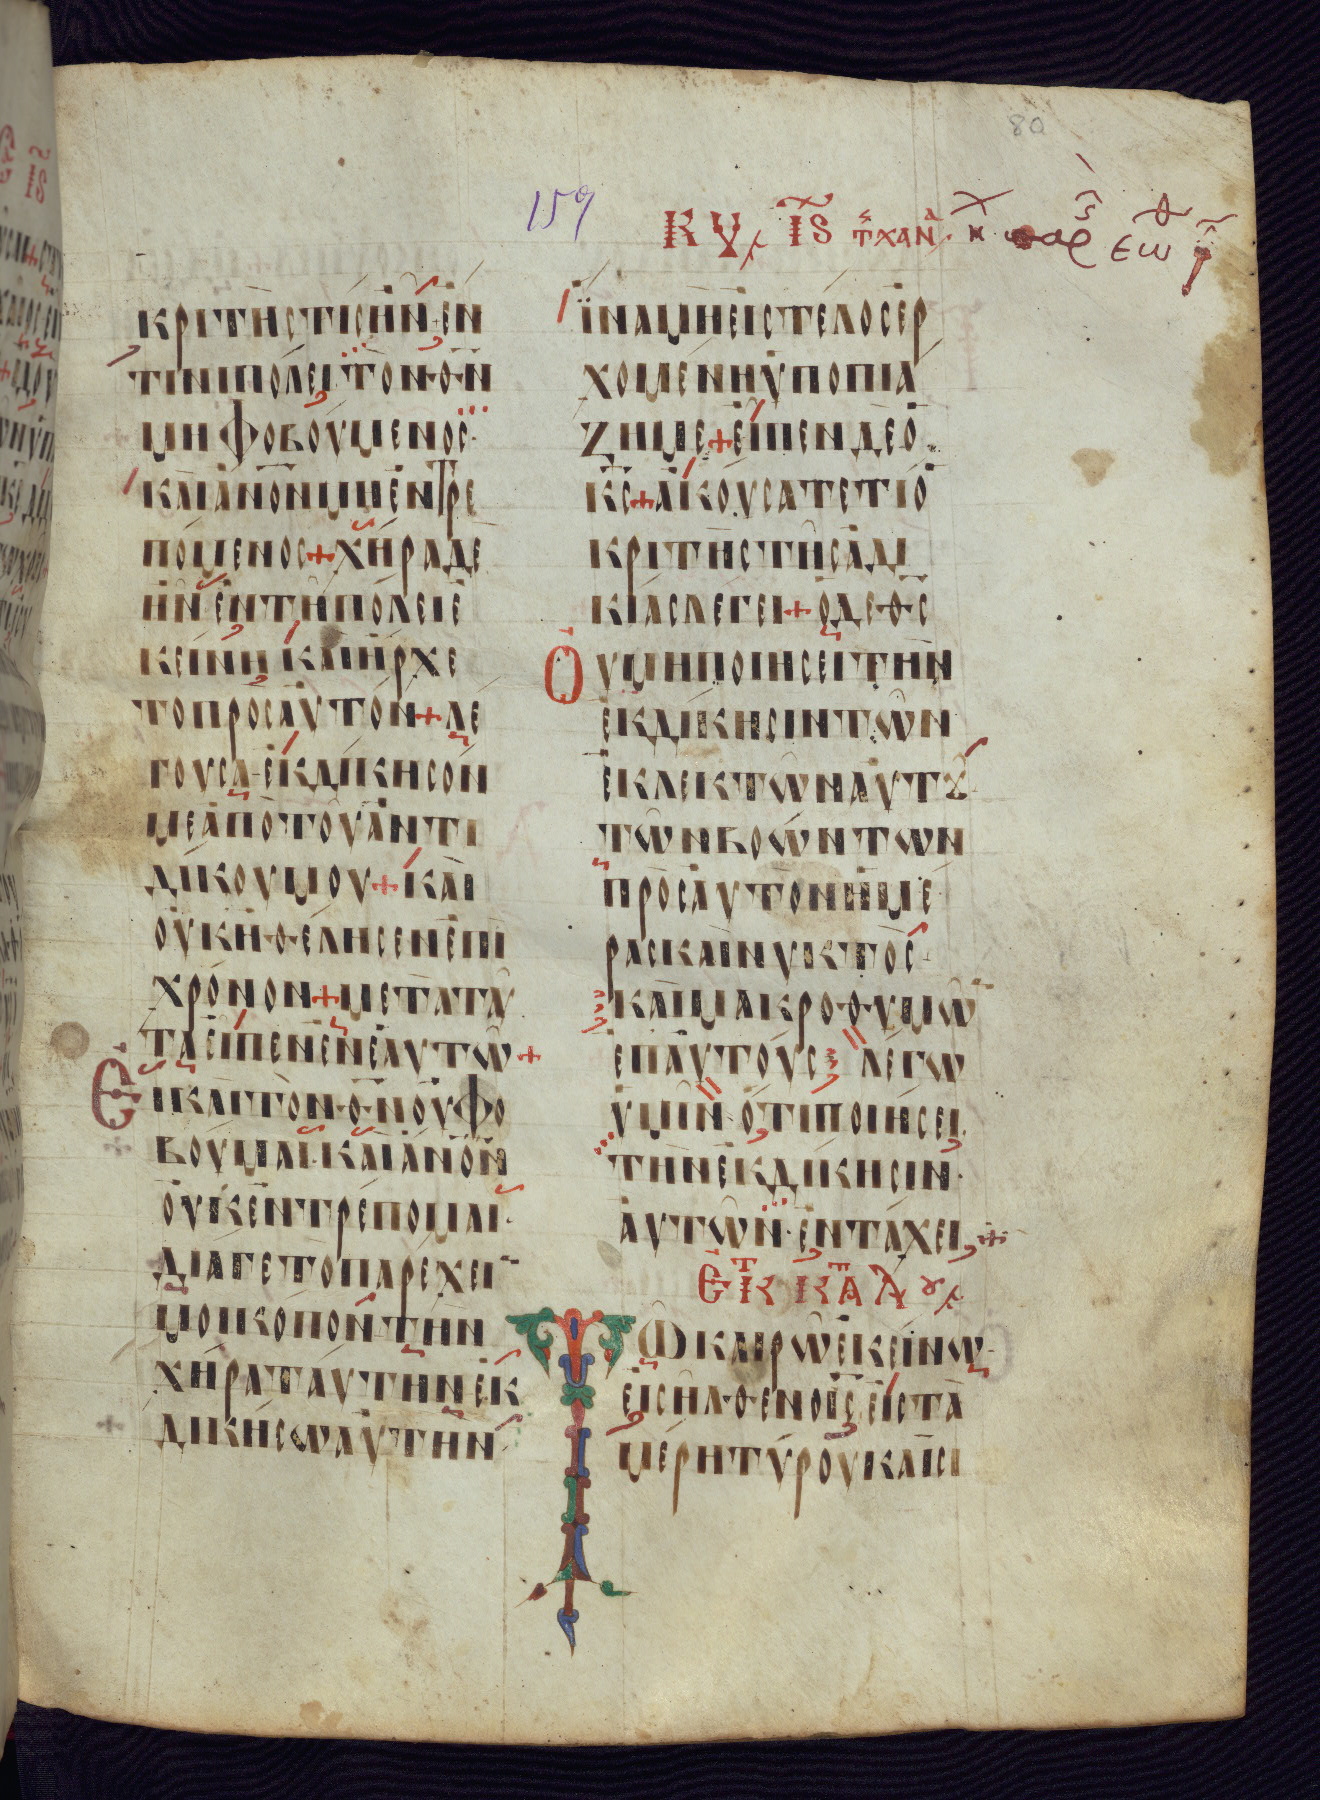 80
159
ΚΥ ΙϚ ΤΧΑΝ
ΚΡΙΤΗΣΤΙΣΗΝ ΕΝ
ΤΙΝΙΠΟΛΕΙ ΤΟΝ ΘΝ
ΜΗΦΟΒΟΥΜΕΝΟΣ
ΚΑΙΑΝΟΝΜΗΕΝΤΡΕ
ΠΟΜΕΝΟΣ + ΧΗΡΑΔΕ
ΗΝ ΕΝΤΗΠΟΛΕΙΕ
ΚΕΙΝΗ ΚΑΙΗΡΧΕ
ΤΟΠΡΟΣΑΥΤΟΝ + ΛΕ
ΓΟΥΣΑ ΕΚΔΙΚΗΣΟΝ
ΜΕΑΠΟΤΟΥΑΝΤΙ
ΔΙΚΟΥΜΟΥ + ΚΑΙ
ΟΥΚΗΘΕΛΗΣΕΝΕΠΙ
ΧΡΟΝΟΝ + ΜΕΤΑΤΑΥ
ΤΑΕΙΠΕΝΕΝΕΑΥΤΩ +
ΕΙΚΑΙΤΟΝΘΝΟΥΦΟ
ΒΟΥΜΑΙ·ΚΑΙΑΝΟΝ
ΟΥΚΕΝΤΡΕΠΟΜΑΙ·
ΔΙΑΓΕΤΟΠΑΡΕΧΕΙ
ΜΟΙΚΟΠΟΝΤΗΝ
ΧΗΡΑΤΑΥΤΗΝΕΚ
ΔΙΚΗΣΩΑΥΤΗΝ
ΪΝΑΜΗΕΙΣΤΕΛΟΣΕΡ
ΧΟΜΕΝΗΥΠΟΠΙΑ
ΖΗΜΕ + ΕΙΠΕΝΔΕΟ
ΚΣ + ΑΚΟΥΣΑΤΕΤΙΟ
ΚΡΙΤΗΣΤΗΣΑΔΙ
ΚΙΑΣΛΕΓΕΙ + ΟΔΕΘΣ
ΟΥΜΗΠΟΙΗΣΕΙΤΗΝ
ΕΚΔΙΚΗΣΙΝΤΩΝ
ΕΚΛΕΚΤΩΝΑΥΤȢ
ΤΩΝΒΟΩΝΤΩΝ
ΠΡΟΣΑΥΤΟΝΗΜΕ
ΡΑΣΚΑΙΝΥΚΤΟΣ
ΚΑΙΜΑΚΡΟΘΥΜΩ
ΕΠΑΥΤΟΥΣ ΛΕΓΩ
ΥΜΙΝ ΟΤΙΠΟΙΗΣΕΙ
ΤΗΝΕΚΔΙΚΗΣΙΝ·
ΑΥΤΩΝ·ΕΝΤΑΧΕΙ +
ΕΚ Κ Α Λ
ΤΩΚΑΙΡΩΕΚΕΙΝΩ
ΕΙΣΗΛΘΕΝΟΙΣ ΕΙΣΤΑ
ΜΕΡΗΤΥΡΟΥΚΑΙΣΙ